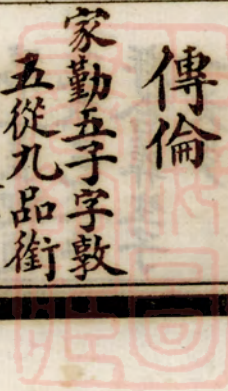 傳倫
家勤五子字敦
五從九品銜